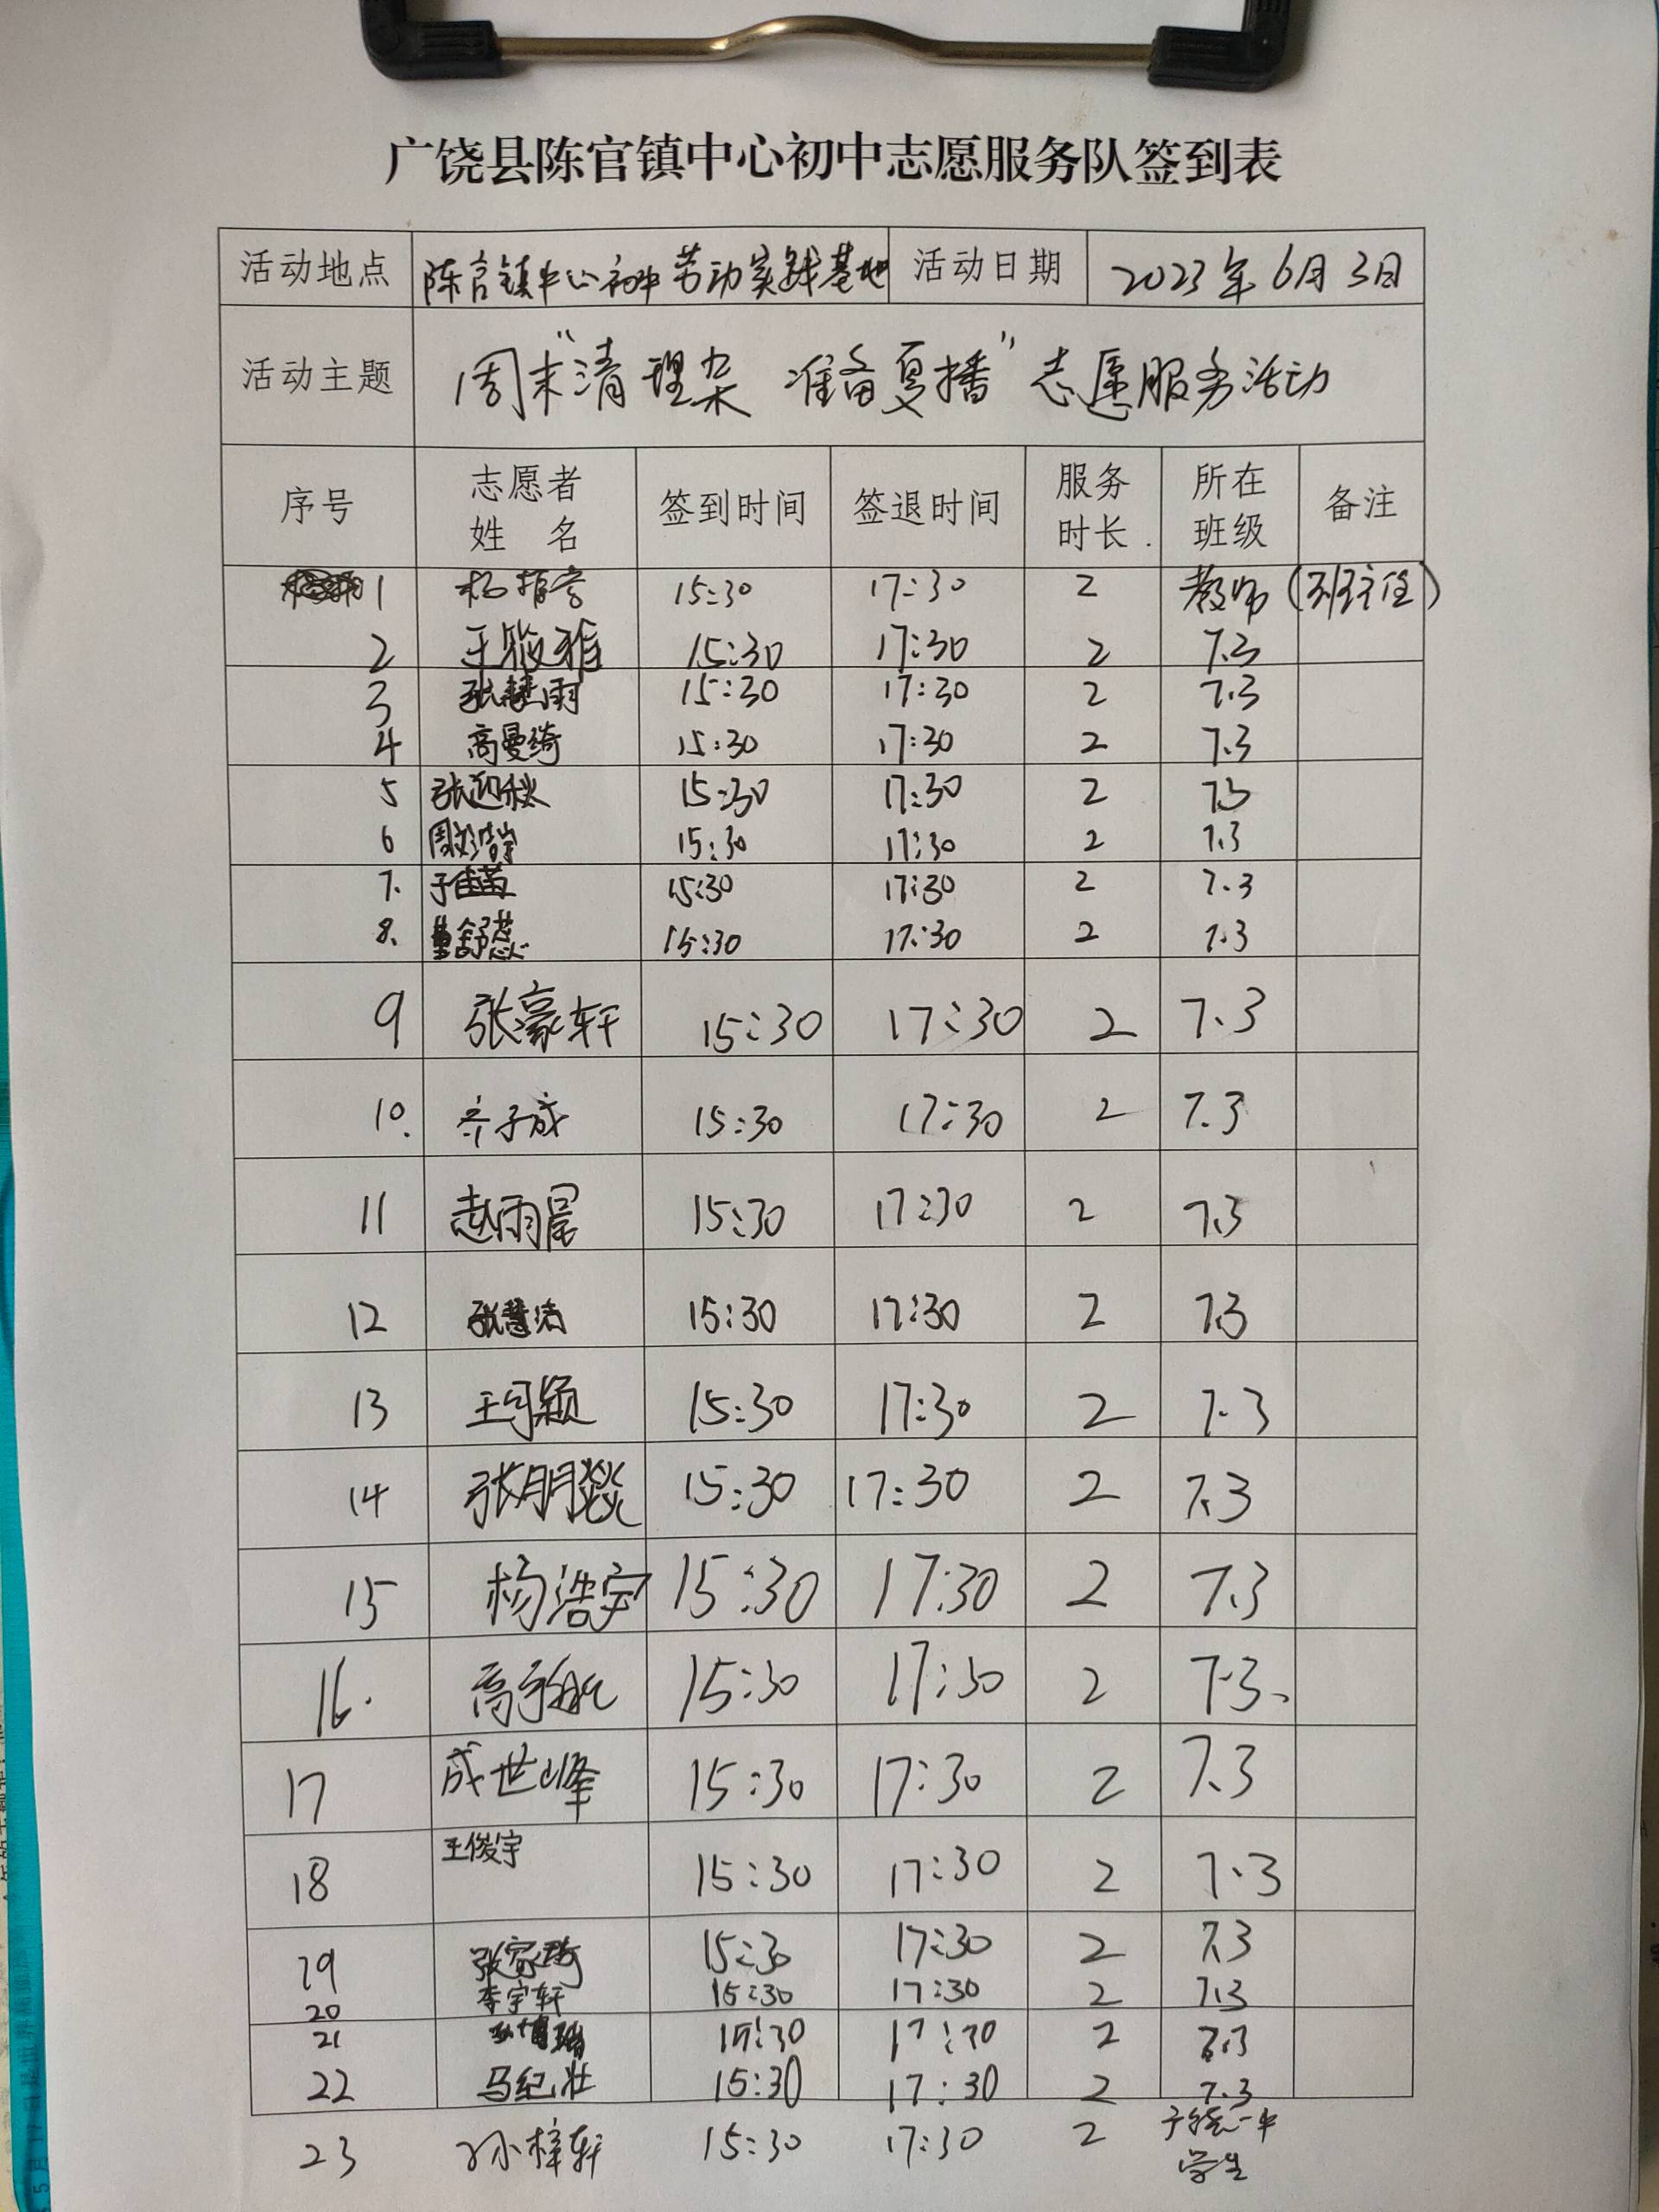 广饶县陈官镇中心初中志愿服务队签到表
活动地点 陈官镇中心初中劳动实践基地 活动日期 2023年6月3日
活动主题 周末“清理杂 准备夏播”志愿服务活动
序号 志愿者姓 名 签到时间 签退时间 服务时长 所在班级 备注
1 杨 15:30 17:30 2 教师 (班主任)
2 王筱雅 15:30 17:30 2 7.3
3 张慧雨 15:30 17:30 2 7.3
4 高曼绮 15:30 17:30 2 7.3
5 张迎秋 15:30 17:30 2 7.3
6 周文浩宇 15:30 17:30 2 7.3
7. 于佳苗 15:30 17:30 2 7.3
8. 曹舒蕊 15:30 17:30 2 7.3
9 张豪轩 15:30 17:30 2 7.3
10. 齐子成 15:30 17:30 2 7.3
11 赵雨晨 15:30 17:30 2 7.3
12 张慧洁 15:30 17:30 2 7.3
13 王可颖 15:30 17:30 2 7.3
14 张朋燚 15:30 17:30 2 7.3
15 杨浩宇 15:30 17:30 2 7.3
16. 高宇航 15:30 17:30 2 7.3、
17 成世峰 15:30 17:30 2 7.3
18 王俊宇 15:30 17:30 2 7.3
19 张家琦 15:30 17:30 2 7.3
20 李宇轩 15:30 17:30 2 7.3
21 15:30 17:30 2 7.3
22 马纪壮 15:30 17:30 2 7.3
23 孙梓轩 15:30 17:30 2 一中
学生